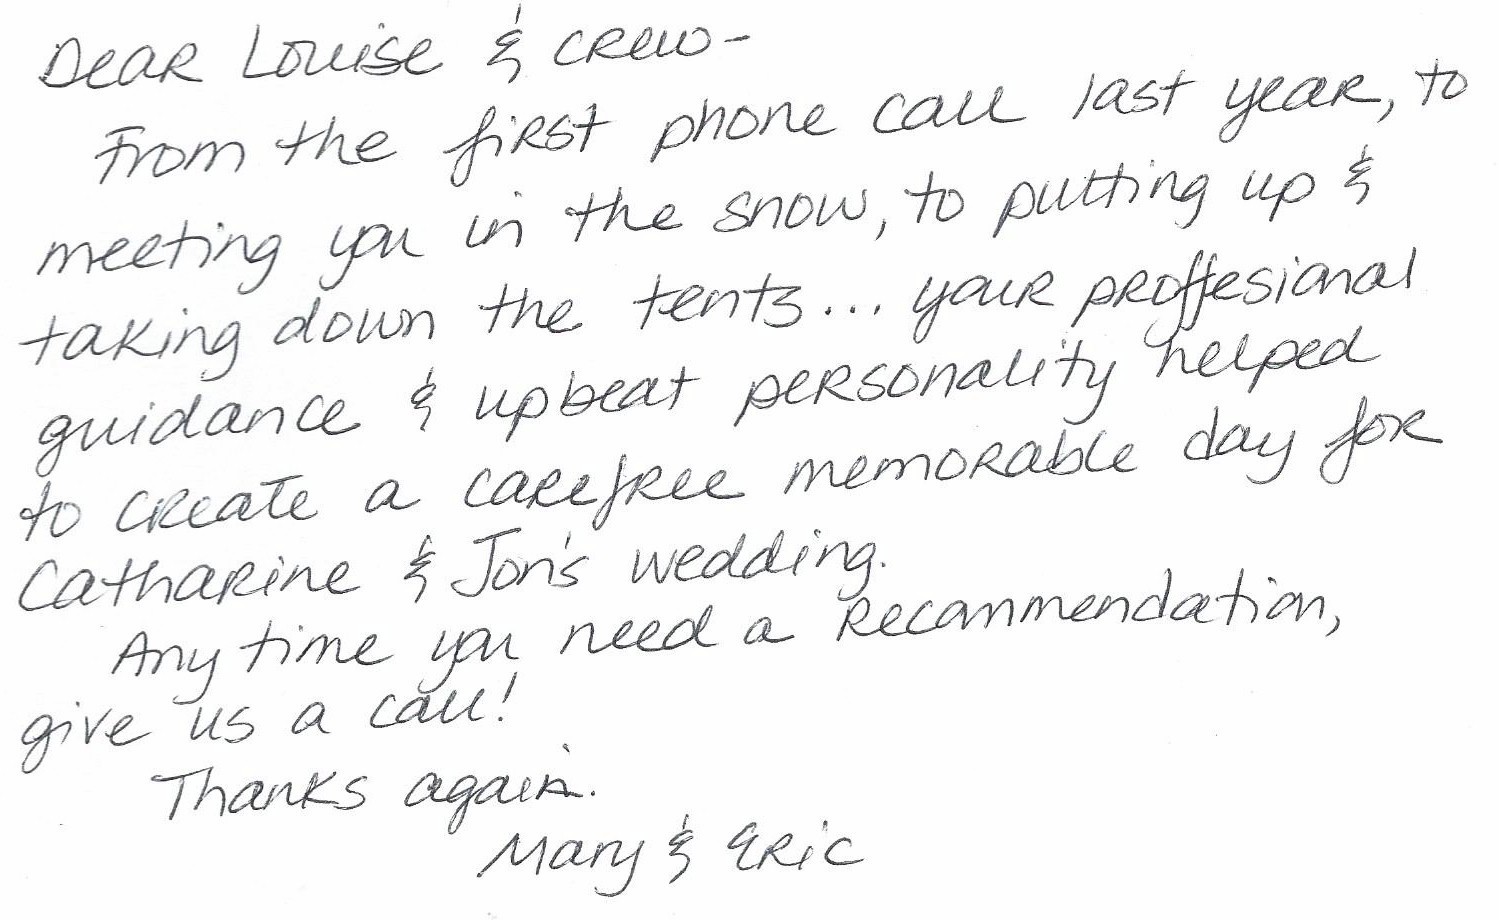 Dear Louise & crew -
From the first phone call last year, to
meeting you in the snow, to putting up &
taking down the tents... your proffesional
guidance & upbeat personality helped
to create a carefree memorable day for
Catharine & Jon's wedding.
Any time you need a recommendation,
give us a call!
Thanks again.
Mary & Eric